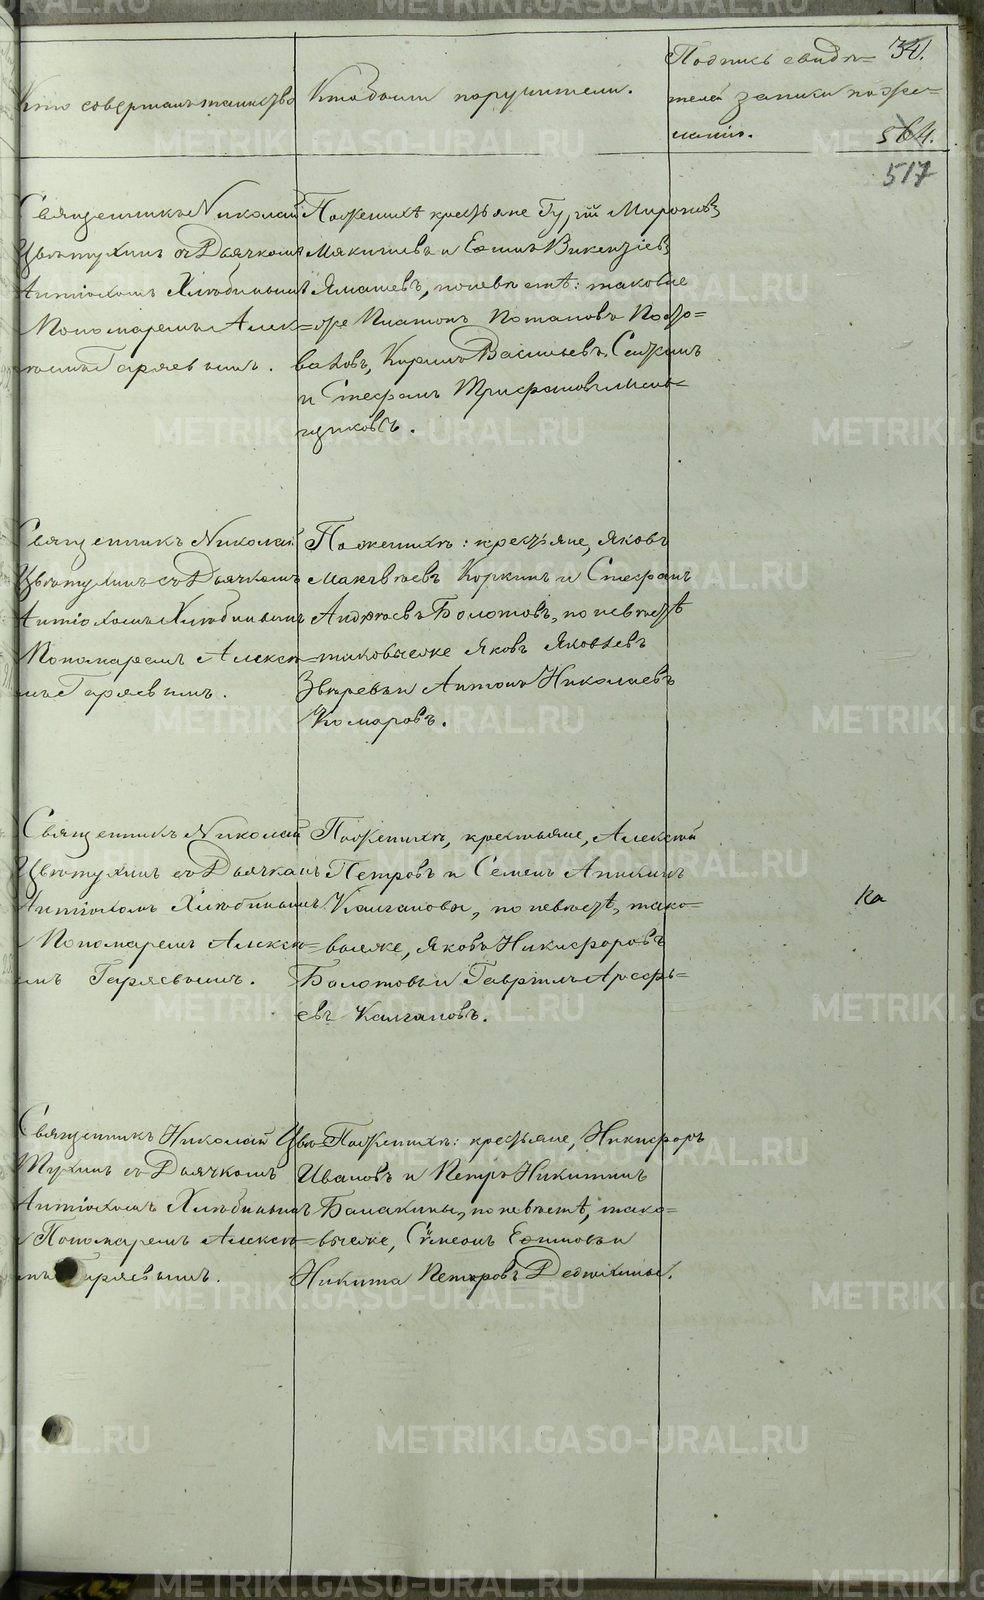 Кто совершалъ таинство
Кто были поручители.
Подпись свидѣ=
телей записи по же=
ланію.
34.
564.
517
Священникъ Николай
Цвѣтухинъ съ Дьячкомъ
Антіохомъ Хлюбинымъ
Пономаремъ Алек=
Гаряевымъ.
По женихѣ крестьяне Гурій Мироновъ
Мякишевъ и Ефимъ Викентіевъ
Ямашевъ, по невѣстѣ: таковые
же Платонъ Потаповъ
Кирилъ Васильевъ
и Стефанъ Трифановъ
щиковъ.
Священникъ Николай
Цвѣтухинъ съ Дьячкомъ
Антіохомъ Хлюбинымъ
Пономаремъ Алексѣ=
мъ Гаряевымъ.
По женихѣ: крестьяне, Яковъ
Матвѣевъ Коркинъ и Стефанъ
Андреевъ Болотовъ, по невѣстѣ
таковые же Яковъ Яковлевъ
Звѣревъ и Антонъ Николаевъ
Комаровъ.
Священникъ Николай
Цвѣтухинъ съ Дьячкомъ
Антіохомъ Хлюбинымъ
Пономаремъ Алексѣ=
мъ Гаряевымъ.
По женихѣ, крестьяне, Алексѣй
Петровъ и Семенъ Аникинъ
Калгановы, по невѣстѣ, тако=
выеже, Яковъ Никифоровъ
Болотовъ и Гавріилъ Арефь=
евъ Калгановъ.
Священникъ Николай Цвѣ=
тухинъ съ Дьячкомъ
Антіохомъ Хлюбинымъ
Пономаремъ Алексѣ=
Гаряевымъ.
По женихѣ: крестьяне, Никифоръ
Ивановъ и Петръ Никитинъ
Балакины, по невѣстѣ, тако=
выеже, Сѵмеонъ Ефимовъ и
Никита Петровъ Дедюхины.
METRIKI.GASO-URAL.RU